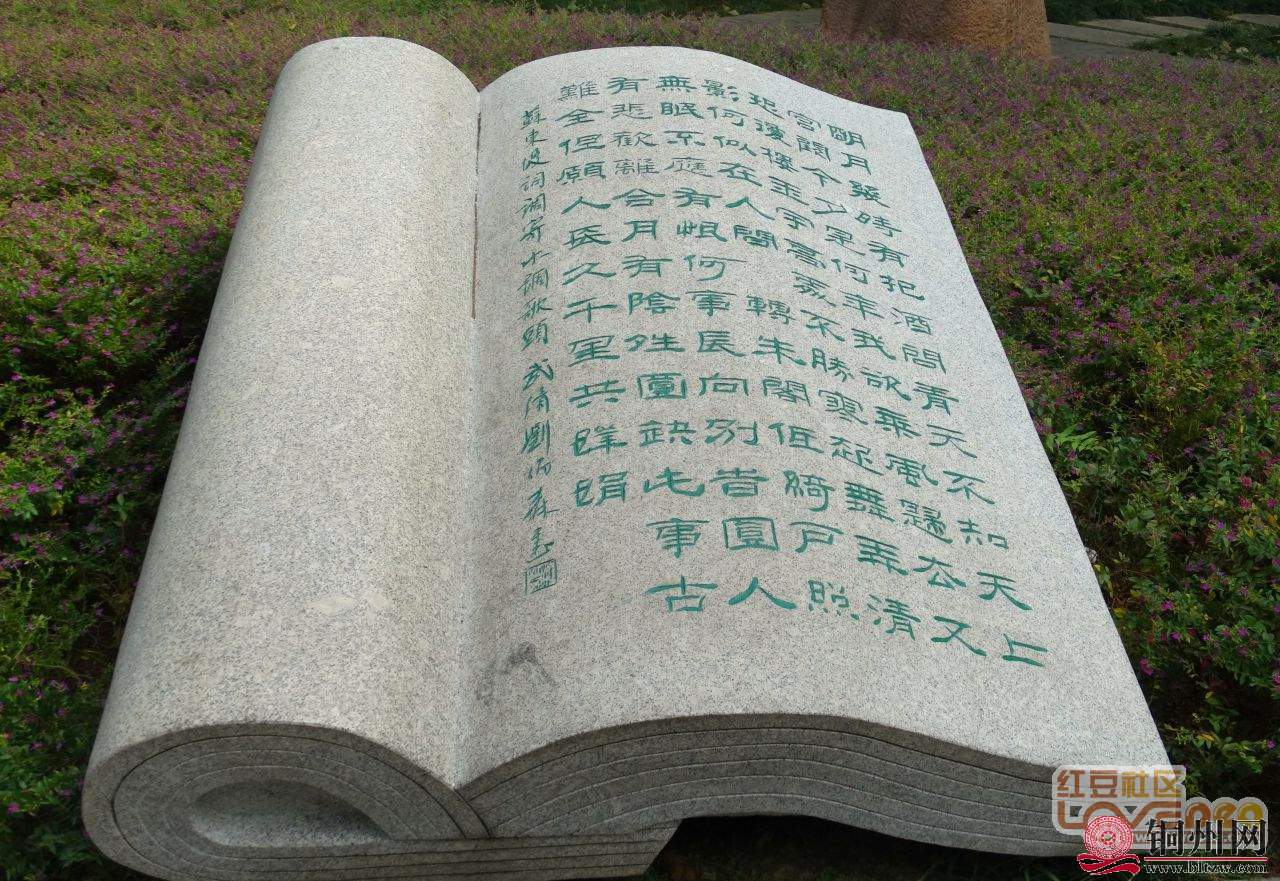 朙月幾時有把酒問青天不知天上
宮闕今夕是何年我欲乘風歸去又
恐瓊樓玉宇高處不勝寒起舞弄清
影何似在人間 轉朱閣低綺戶照
無眠不應有恨何事長向別旹圓人
有悲歡離合月有陰晴圓缺此事古
難全但願人長久千里共嬋娟
蘇東坡詞調寄水調歌頭武清劉炳森書
红豆社区
铜州网
www.bltzw.com